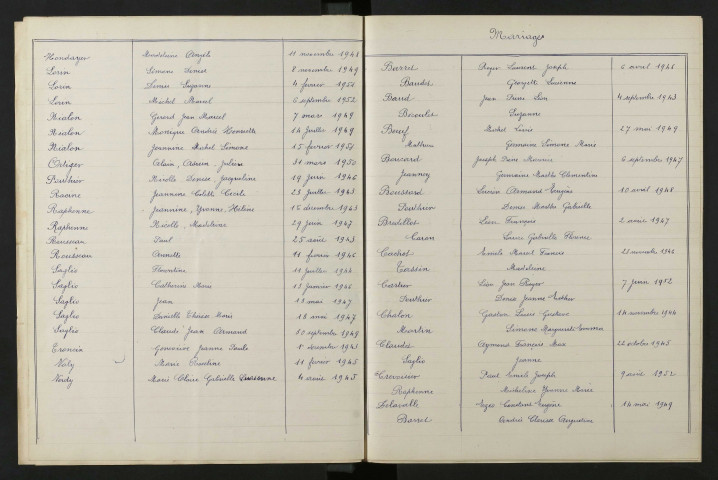 Madeleine Angèle 11 novembre 1948
Lorin Simone Denise 8 novembre 1949
Lorin Denise Suzanne 4 février 1951
Lorin Michel Marcel 6 septembre 1952
Nialon Gérard Jean Marcel 7 mars 1949
Nialon Monique Andrée Henriette 14 juillet 1949
Nialon Jeannine Michel Simone 15 février 1951
Alain, Adrien, Julien 31 mars 1950
Pouthier Nicolle Denise Jacqueline 19 juin 1946
Racine Jeannine Colette Cécile 23 juillet 1943
Raphenne Jeannine, Yvonne, Hélène 15 décembre 1943
Raphenne Nicolle, Madeleine 29 juin 1947
Paul 25 août 1943
Rousseau Annette 11 février 1946
Saglio Florentine 11 juillet 1944
Saglio Catherine Marie 13 janvier 1946
Saglio Jean 18 mai 1947
Saglio Danielle Thérèse Marie 18 mai 1947
Saglio Claude Jean Armand 10 septembre 1949
Geneviève Jeanne Paule 1 décembre 1943
Marie Pauline 11 février 1945
Verdy Marie Claire Gabrielle Suzanne 4 août 1945
Mariages
Barret Roger Laurent Joseph 6 avril 1946
Baudet Georgette Lucienne
Jean Denis Léon 4 septembre 1943
Suzanne
Bœuf Michel Louis 27 mai 1949
Mathieu Germaine Simone Marie
Joseph Dane Maurice 6 septembre 1947
Jeannoy Germaine Marthe Clémentine
Boussard Lucien Armand Eugène 10 avril 1948
Pouthier Denise Marthe Gabrielle
Bredillot Léon François 2 août 1947
Caron Laure Gabrielle Florence
Cachot Emile Marcel Francis 23 novembre 1946
Tassin Madeleine
Cartier Léon Jean Roger 7 juin 1952
Pouthier Denise Jeanne Esther
Chalon Gaston Louis Gustave 14 novembre 1944
Martin Suzanne Marguerite
Claudé Aymond François Max 22 octobre 1945
Saglio Jeanne
Crevoisier Paul Emile Joseph 9 août 1952
Raphenne Micheline Yvonne Marie
Delavelle Constant Eugène 14 mai 1949
Barret Andrée Clarisse Augustine